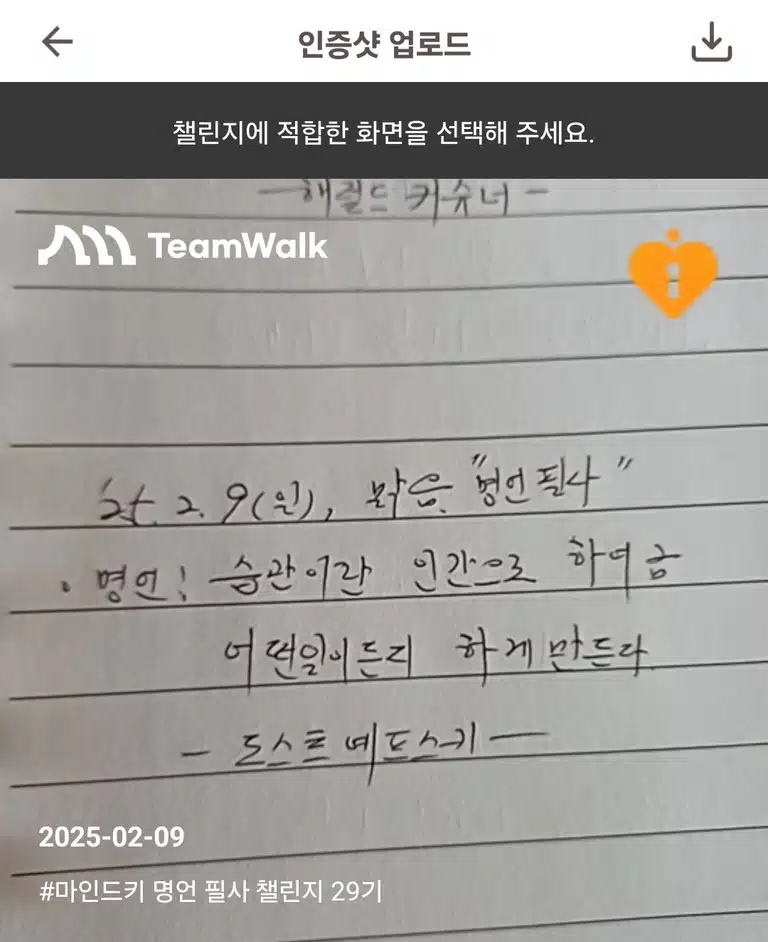 인증샷 업로드
챌린지에 적합한 화면을 선택해 주세요.
- 해럴드 커슈너 -
TeamWalk
'25. 2. 9(일), 맑음 "명언필사"
• 명언: 습관이란 인간으로 하여금
어떤일이든지 하게 만든다
- 도스토예프스키 -
2025-02-09
#마인드키 명언 필사 챌린지 29기